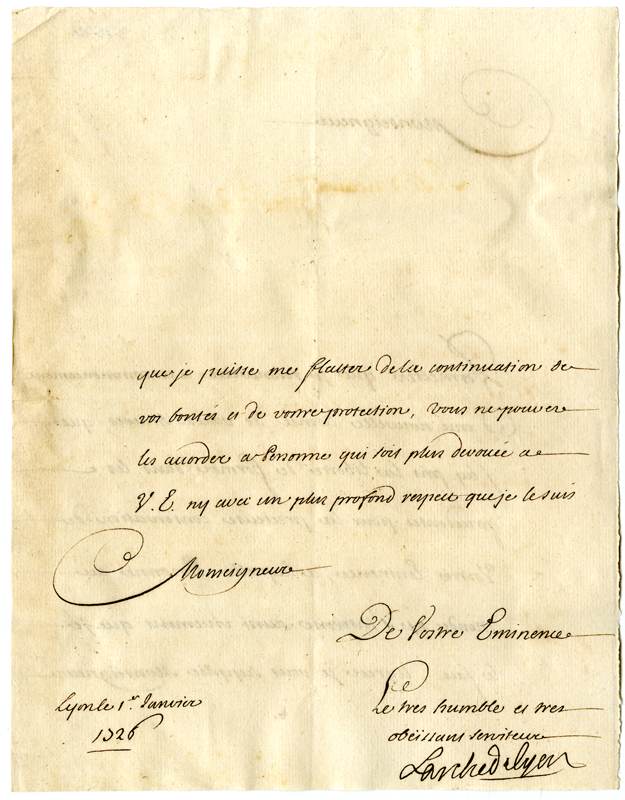 que je puisse me flatter de la continuation de
vos bontés et de vostre protection, vous ne pouvez
les accorder a Personne qui soit plus devouée a
V. E. ny avec un plus profond respect que je le suis
Monseigneur
De Vostre Eminence
Le tres humble et tres
obéissant serviteur
Lyon le 1er Janvier
1726
L'arche de Lyon